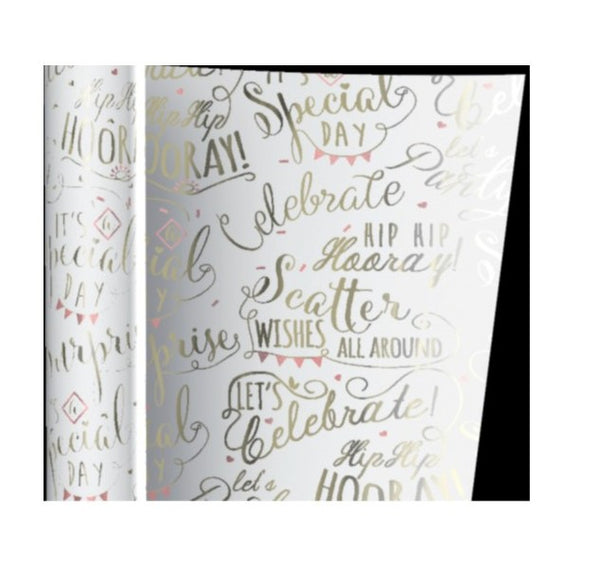 Hip Hip
HOORAY!
IT'S a
Special
DAY
Celebrate
let's
Party
HIP HIP
Hooray!
Scatter
WISHES ALL AROUND
LET'S
Celebrate!
Hip Hip
HOORAY!
let's
IT'S a
Special
DAY
Surprise
Special
DAY